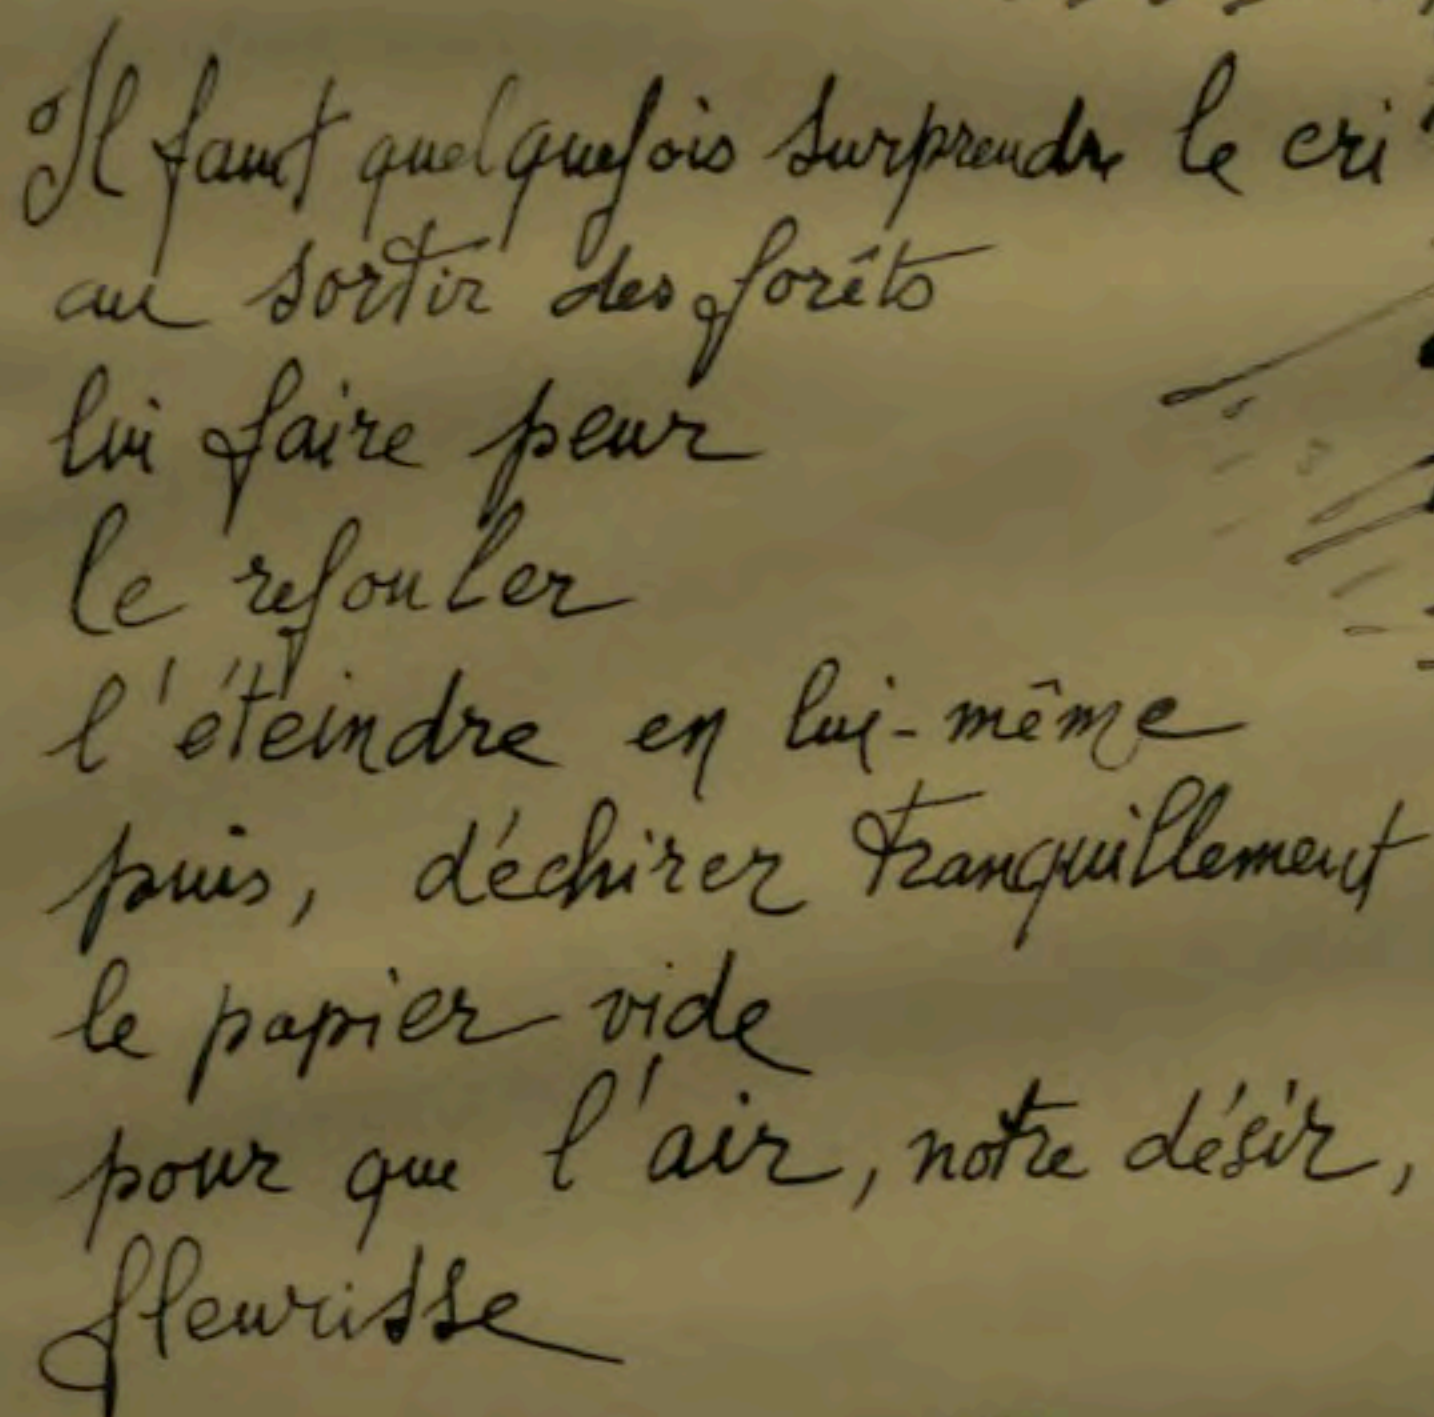 Il faut quelquefois surprendre le cri
au sortir des forêts
lui faire peur
le refouler
l'éteindre en lui-même
puis, déchirer tranquillement
le papier vide
pour que l'air, notre désir,
fleurisse